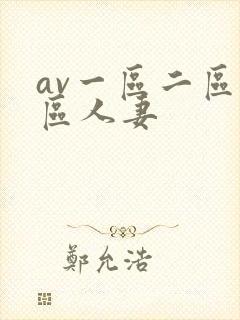 av一區二區
區人妻
鄭允浩